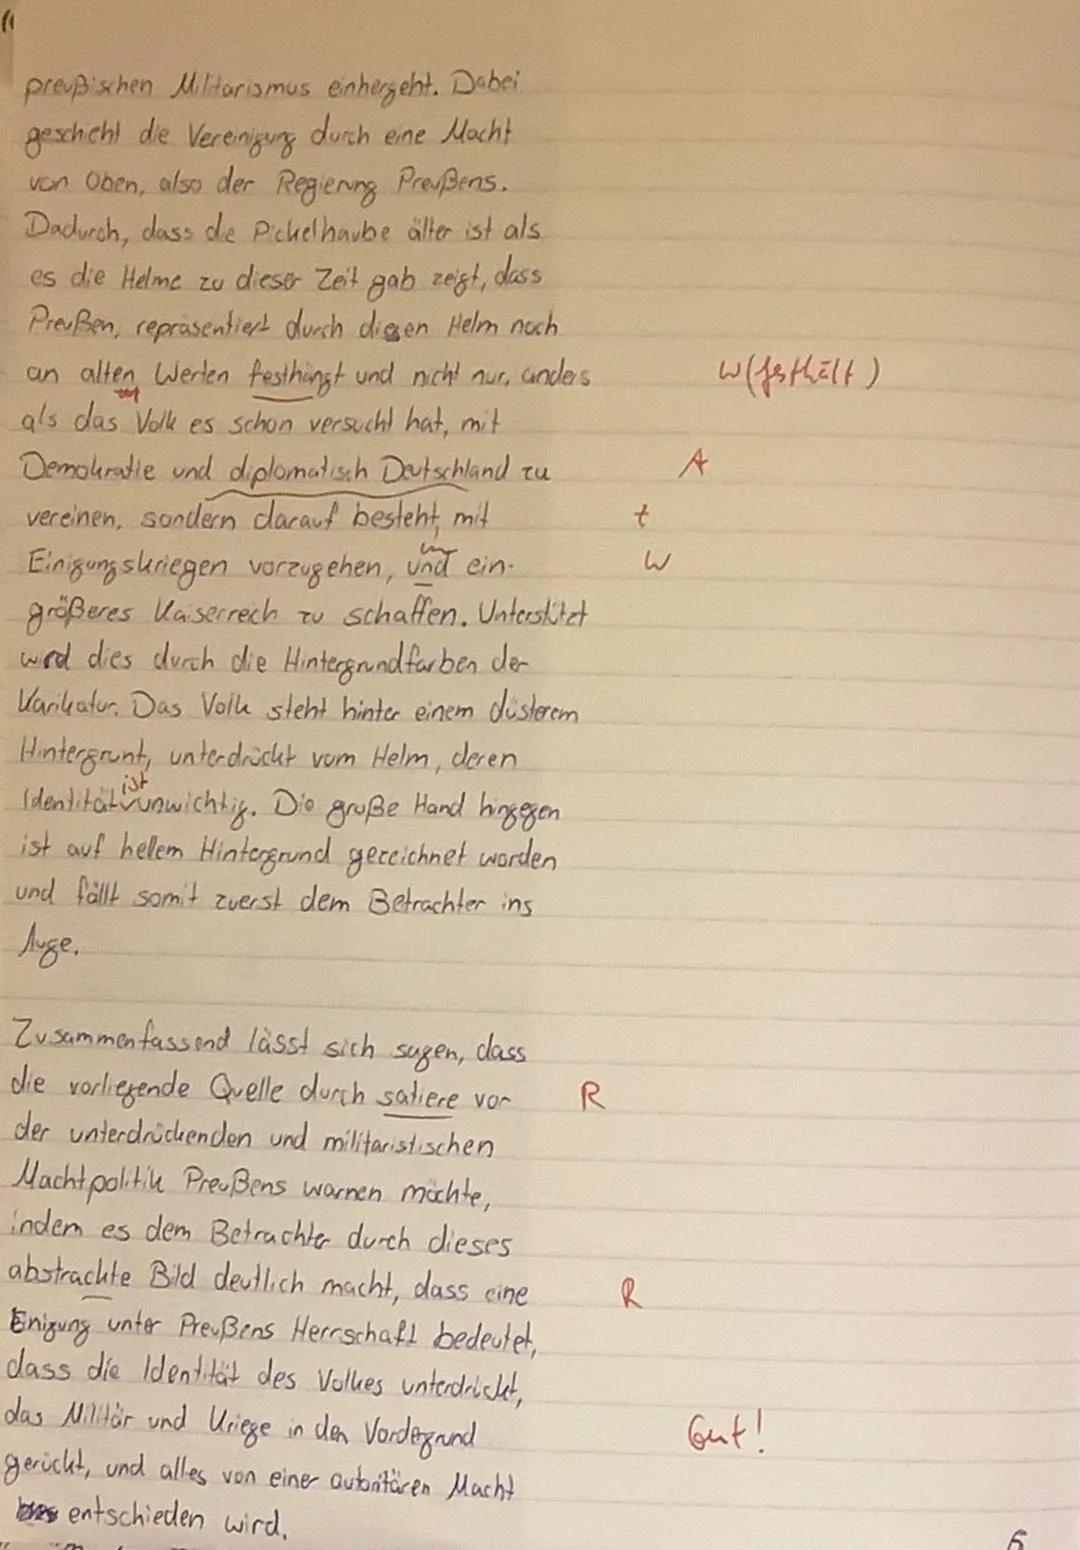 preußischen Militarismus einhergeht. Dabei
geschieht die Vereinigung durch eine Macht
von Oben, also der Regierung Preußens.
Dadurch, dass die Pickelhaube älter ist als
es die Helme zu dieser Zeit gab zeigt, dass
Preußen, repräsentiert durch diesen Helm noch
an alten Werten festhängt und nicht nur, anders W(festhält)
als das Volk es schon versucht hat, mit
Demokratie und diplomatisch Deutschland zu A
vereinen, sondern darauf besteht, mit t
Einigungskriegen vorzugehen, und ein W
größeres Kaiserreich zu schaffen. Unterstützt
wird dies durch die Hintergrundfarben der
Karikatur. Das Volk steht hinter einem düsterem
Hintergrunt, unterdrückt vom Helm, deren
Identität ist unwichtig. Die große Hand hingegen
ist auf hellem Hintergrund gezeichnet worden
und fällt somit zuerst dem Betrachter ins
Auge.
Zusammenfassend lässt sich sagen, dass
die vorliegende Quelle durch satiere vor R
der unterdrückenden und militaristischen
Machtpolitik Preußens warnen möchte,
indem es dem Betrachter durch dieses
abstrackte Bild deutlich macht, dass eine R
Einigung unter Preußens Herrschaft bedeutet,
dass die Identität des Volkes unterdrückt,
das Militär und Kriege in den Vordergrund Gut!
gerückt, und alles von einer autoritären Macht
entschieden wird.
5